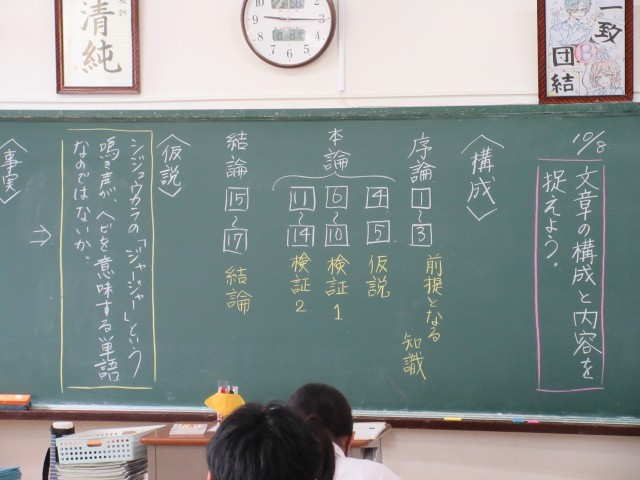 10/8
文章の構成と内容を
捉えよう。
〈構成〉
序論 1～3 前提となる
知識
本論
4 5 仮説
6～10 検証1
11～14 検証2
結論 15～17 結論
〈仮説〉
シジュウカラの「ジャージャー」という
鳴き声が、ヘビを意味する単語
なのではないか。
→
〈事実〉
清純
一致
団結